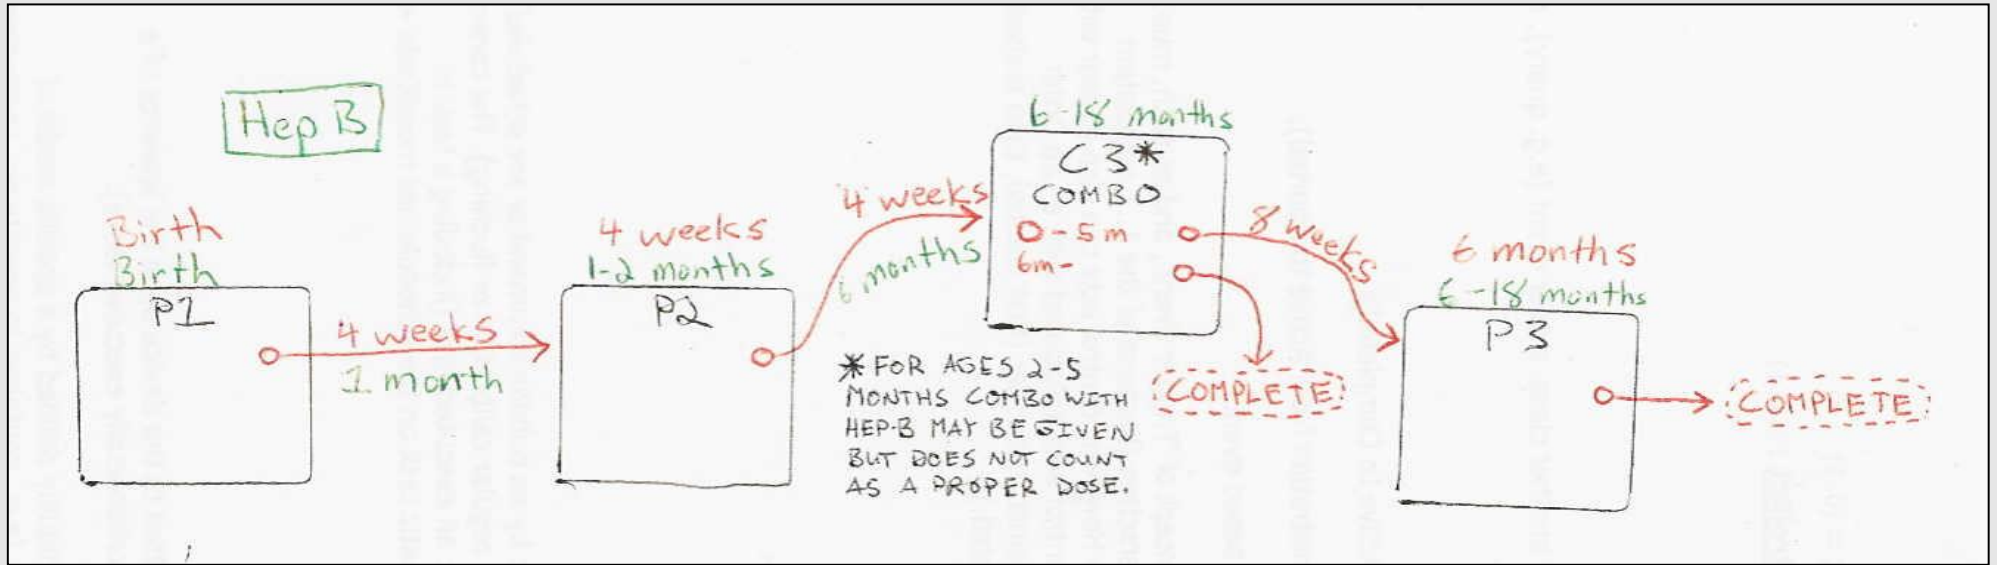 Hep B
Birth
Birth
P1
4 weeks
1 month
4 weeks
1-2 months
P2
4 weeks
6 months
6-18 months
C3*
COMBO
0-5m
6m-
8 weeks
* FOR AGES 2-5
MONTHS COMBO WITH
HEP-B MAY BE GIVEN
BUT DOES NOT COUNT
AS A PROPER DOSE.
COMPLETE
6 months
6-18 months
P3
COMPLETE